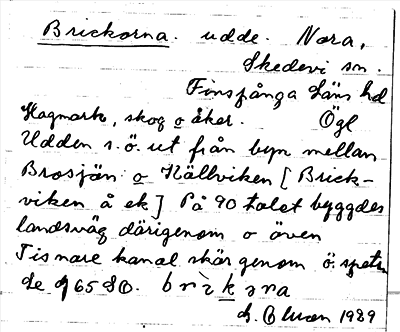 Brickorna. udde. Nora,
Skedevi sn.
Finspånga Läns hd
Hagmark, skog o åker. Ögl
Udden s.ö. ut från byn mellan
Brosjön o Källviken [Brick-
viken å ek] På 90 talet byggdes
landsväg därigenom o även
Tisnare kanal skär genom ö. spetsen
Se 965 80. brìkərna
1929